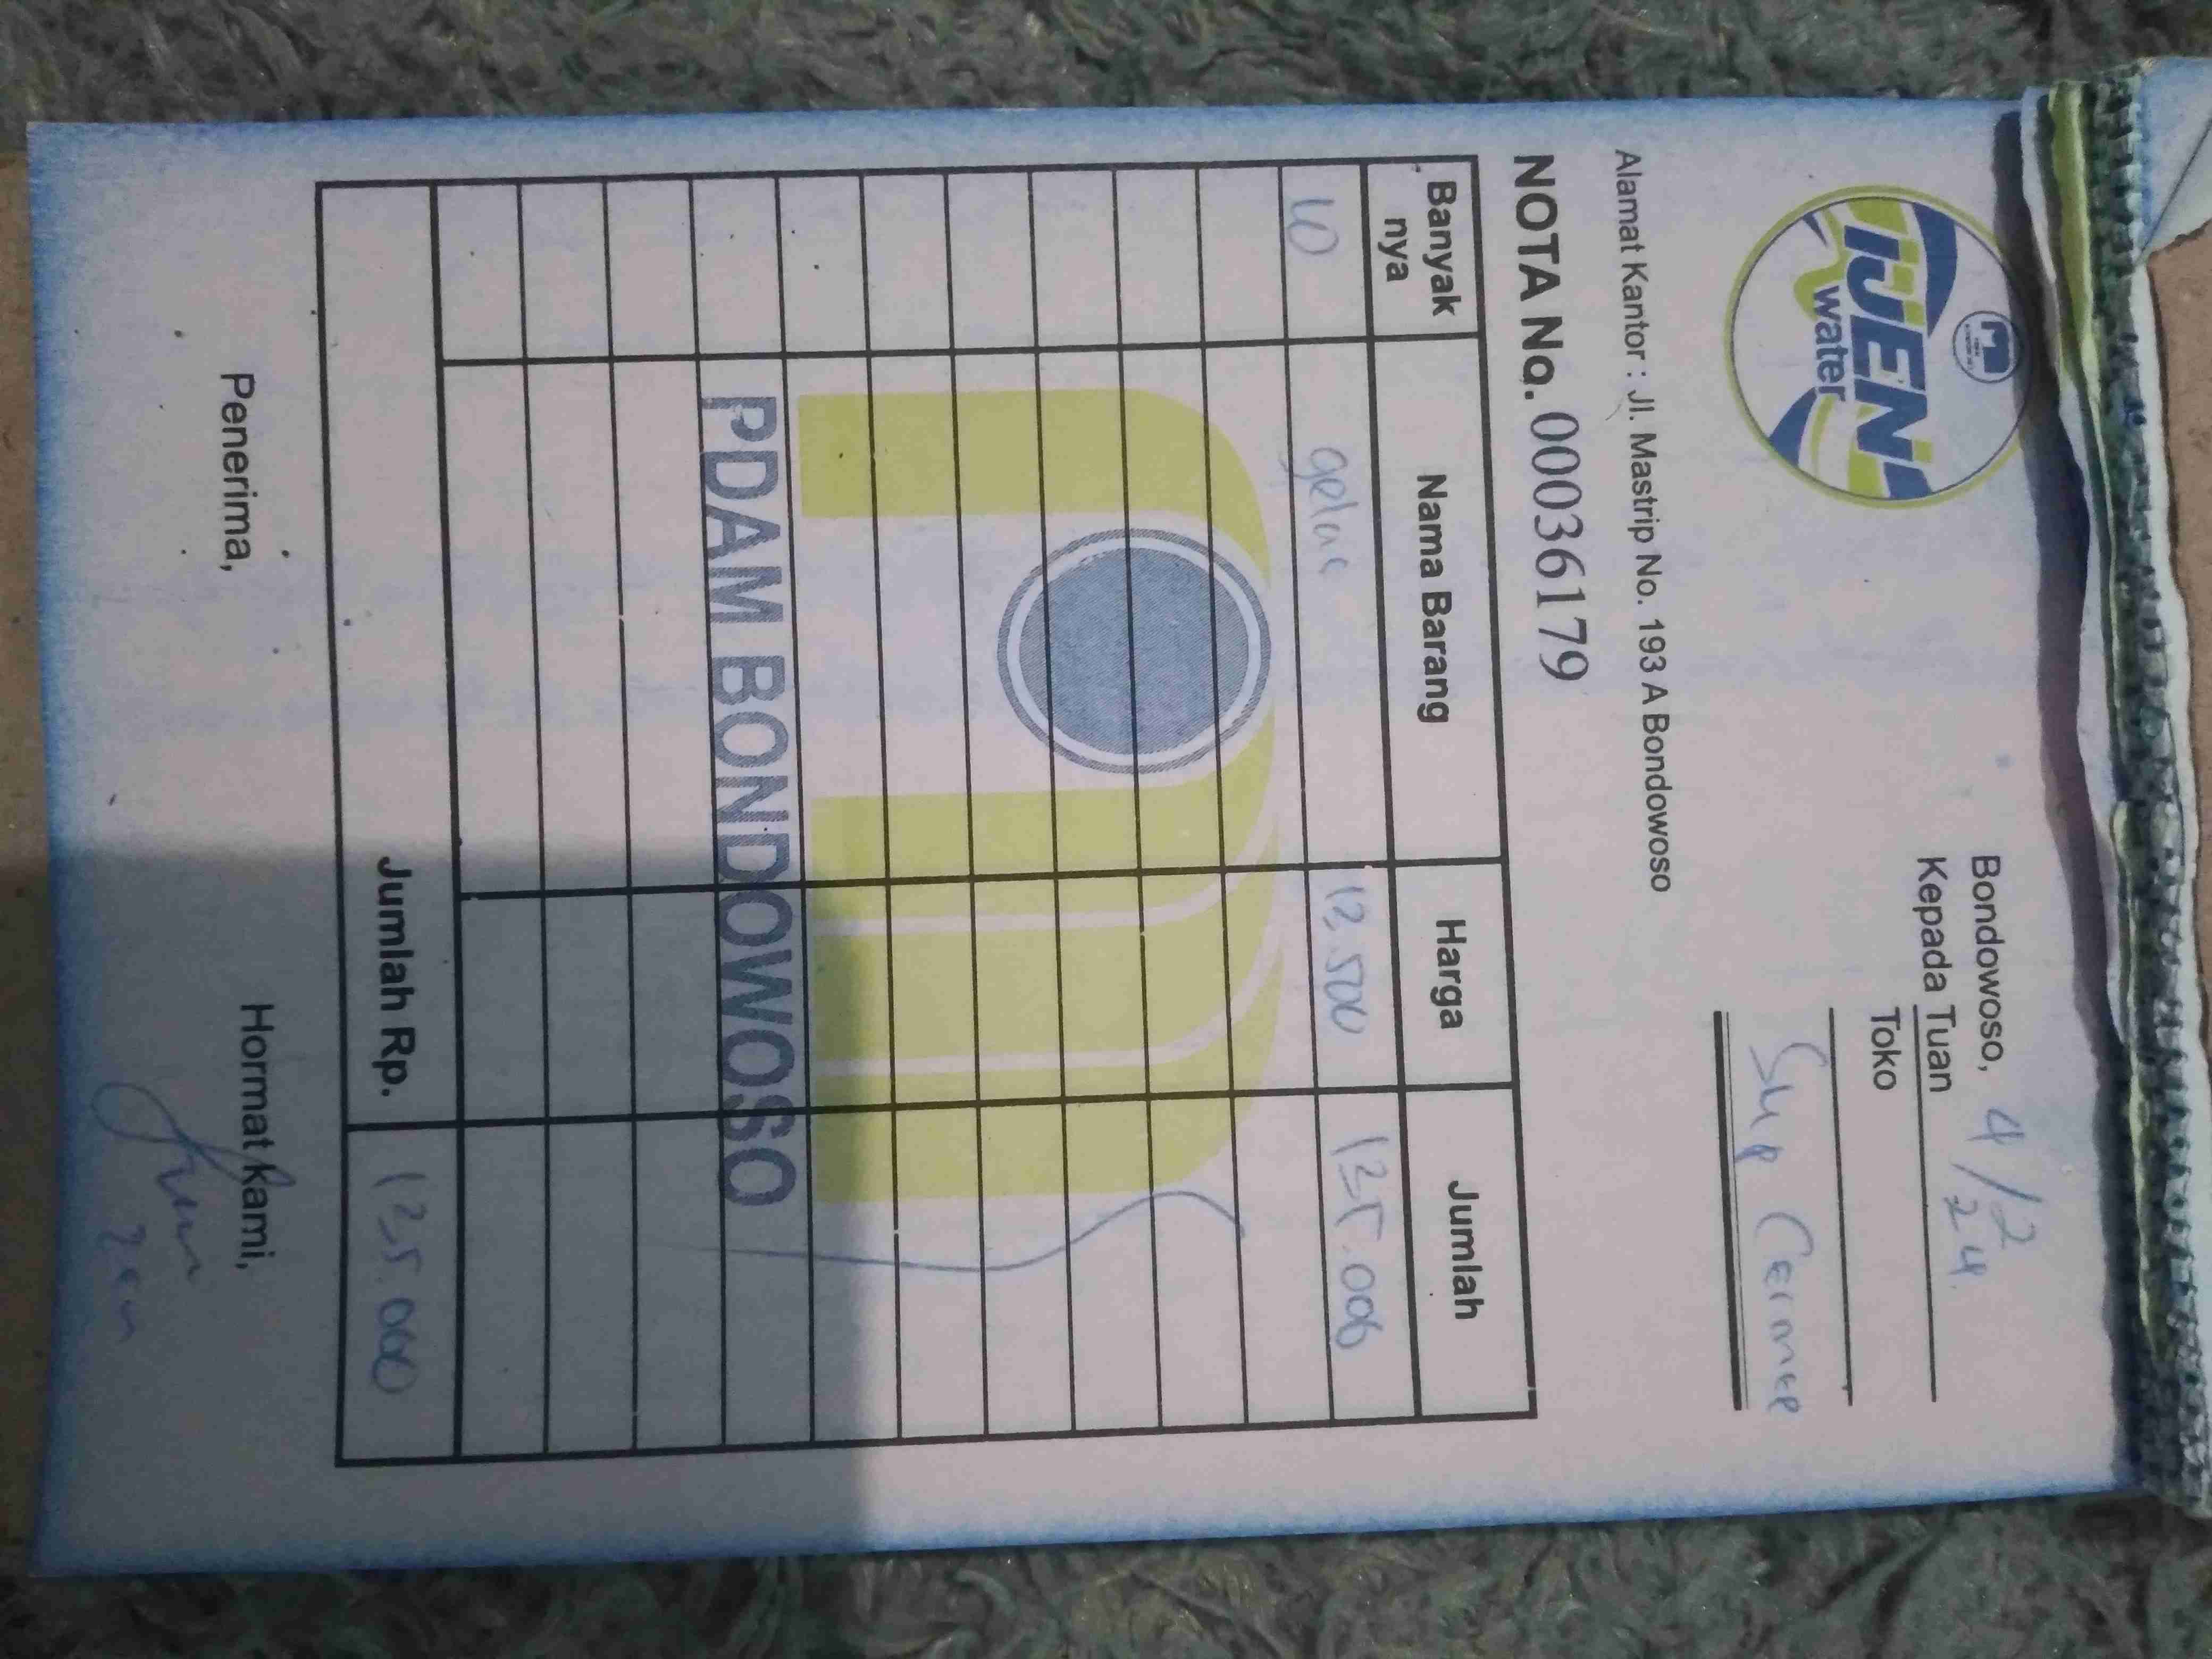 IJEN
water
Bondowoso, 4/2 24.
Kepada Tuan
Toko
Cermee
Alamat Kantor : Jl. Mastrip No. 193 A Bondowoso
NOTA No. 00036179
Banyak nya Nama Barang Harga Jumlah
10 gelas 12.500 125.000
PDAM BONDOWOSO
Jumlah Rp. 125.000
Penerima, Hormat Kami,